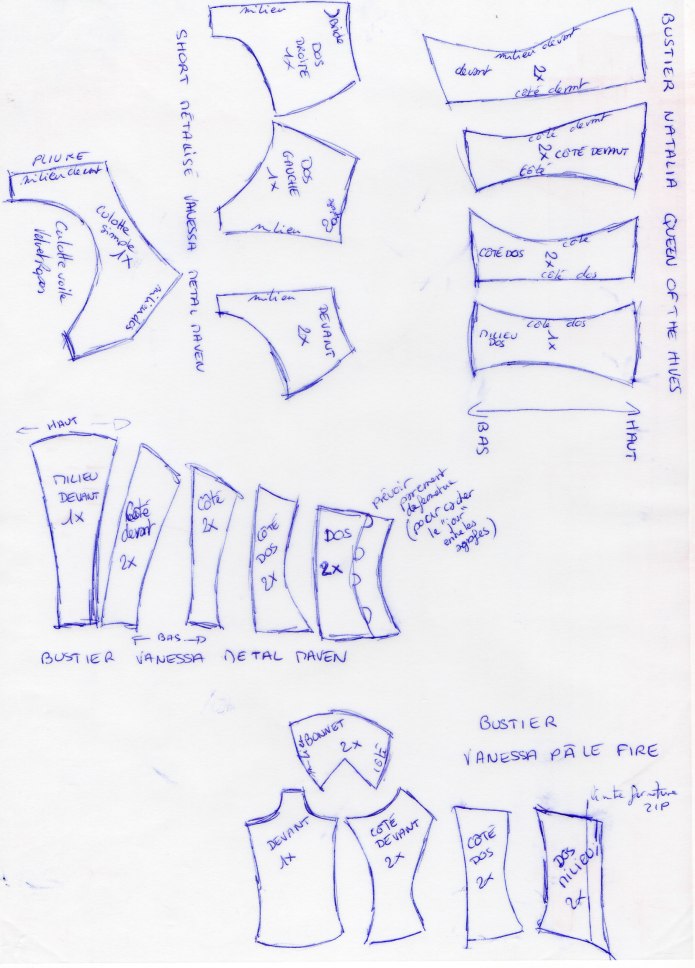 milieu
Bride
DOS
DROITE
1X
DOS
GAUCHE
1X
milieu
milieu
DEVANT
2X
SHORT MÉTALISÉ VANESSA METAL MAVEN
PLIURE
milieu devant
Culotte
simple
1X
Culotte voile
milieu dos
milieu devant
devant
2X
coté devant
coté devant
2X CÔTÉ DEVANT
côté
côté
CÔTÉ DOS
2X
coté dos
coté dos
MILIEU
DOS
1X
BAS
HAUT
BUSTIER NATALIA QUEEN OF THE HIVES
HAUT
MILIEU
DEVANT
1X
Coté
devant
2X
COTÉ
2X
COTÉ
DOS
2X
DOS
2X
prévoir
parement
(pour cacher
le "jour"
entre les
agrafes)
BAS
BUSTIER VANESSA METAL MAVEN
BONNET
2X
DEVANT
1X
COTÉ
DEVANT
2X
COTÉ
DOS
2X
DOS
MILIEU
2X
ZIP
BUSTIER
VANESSA PÂLE FIRE